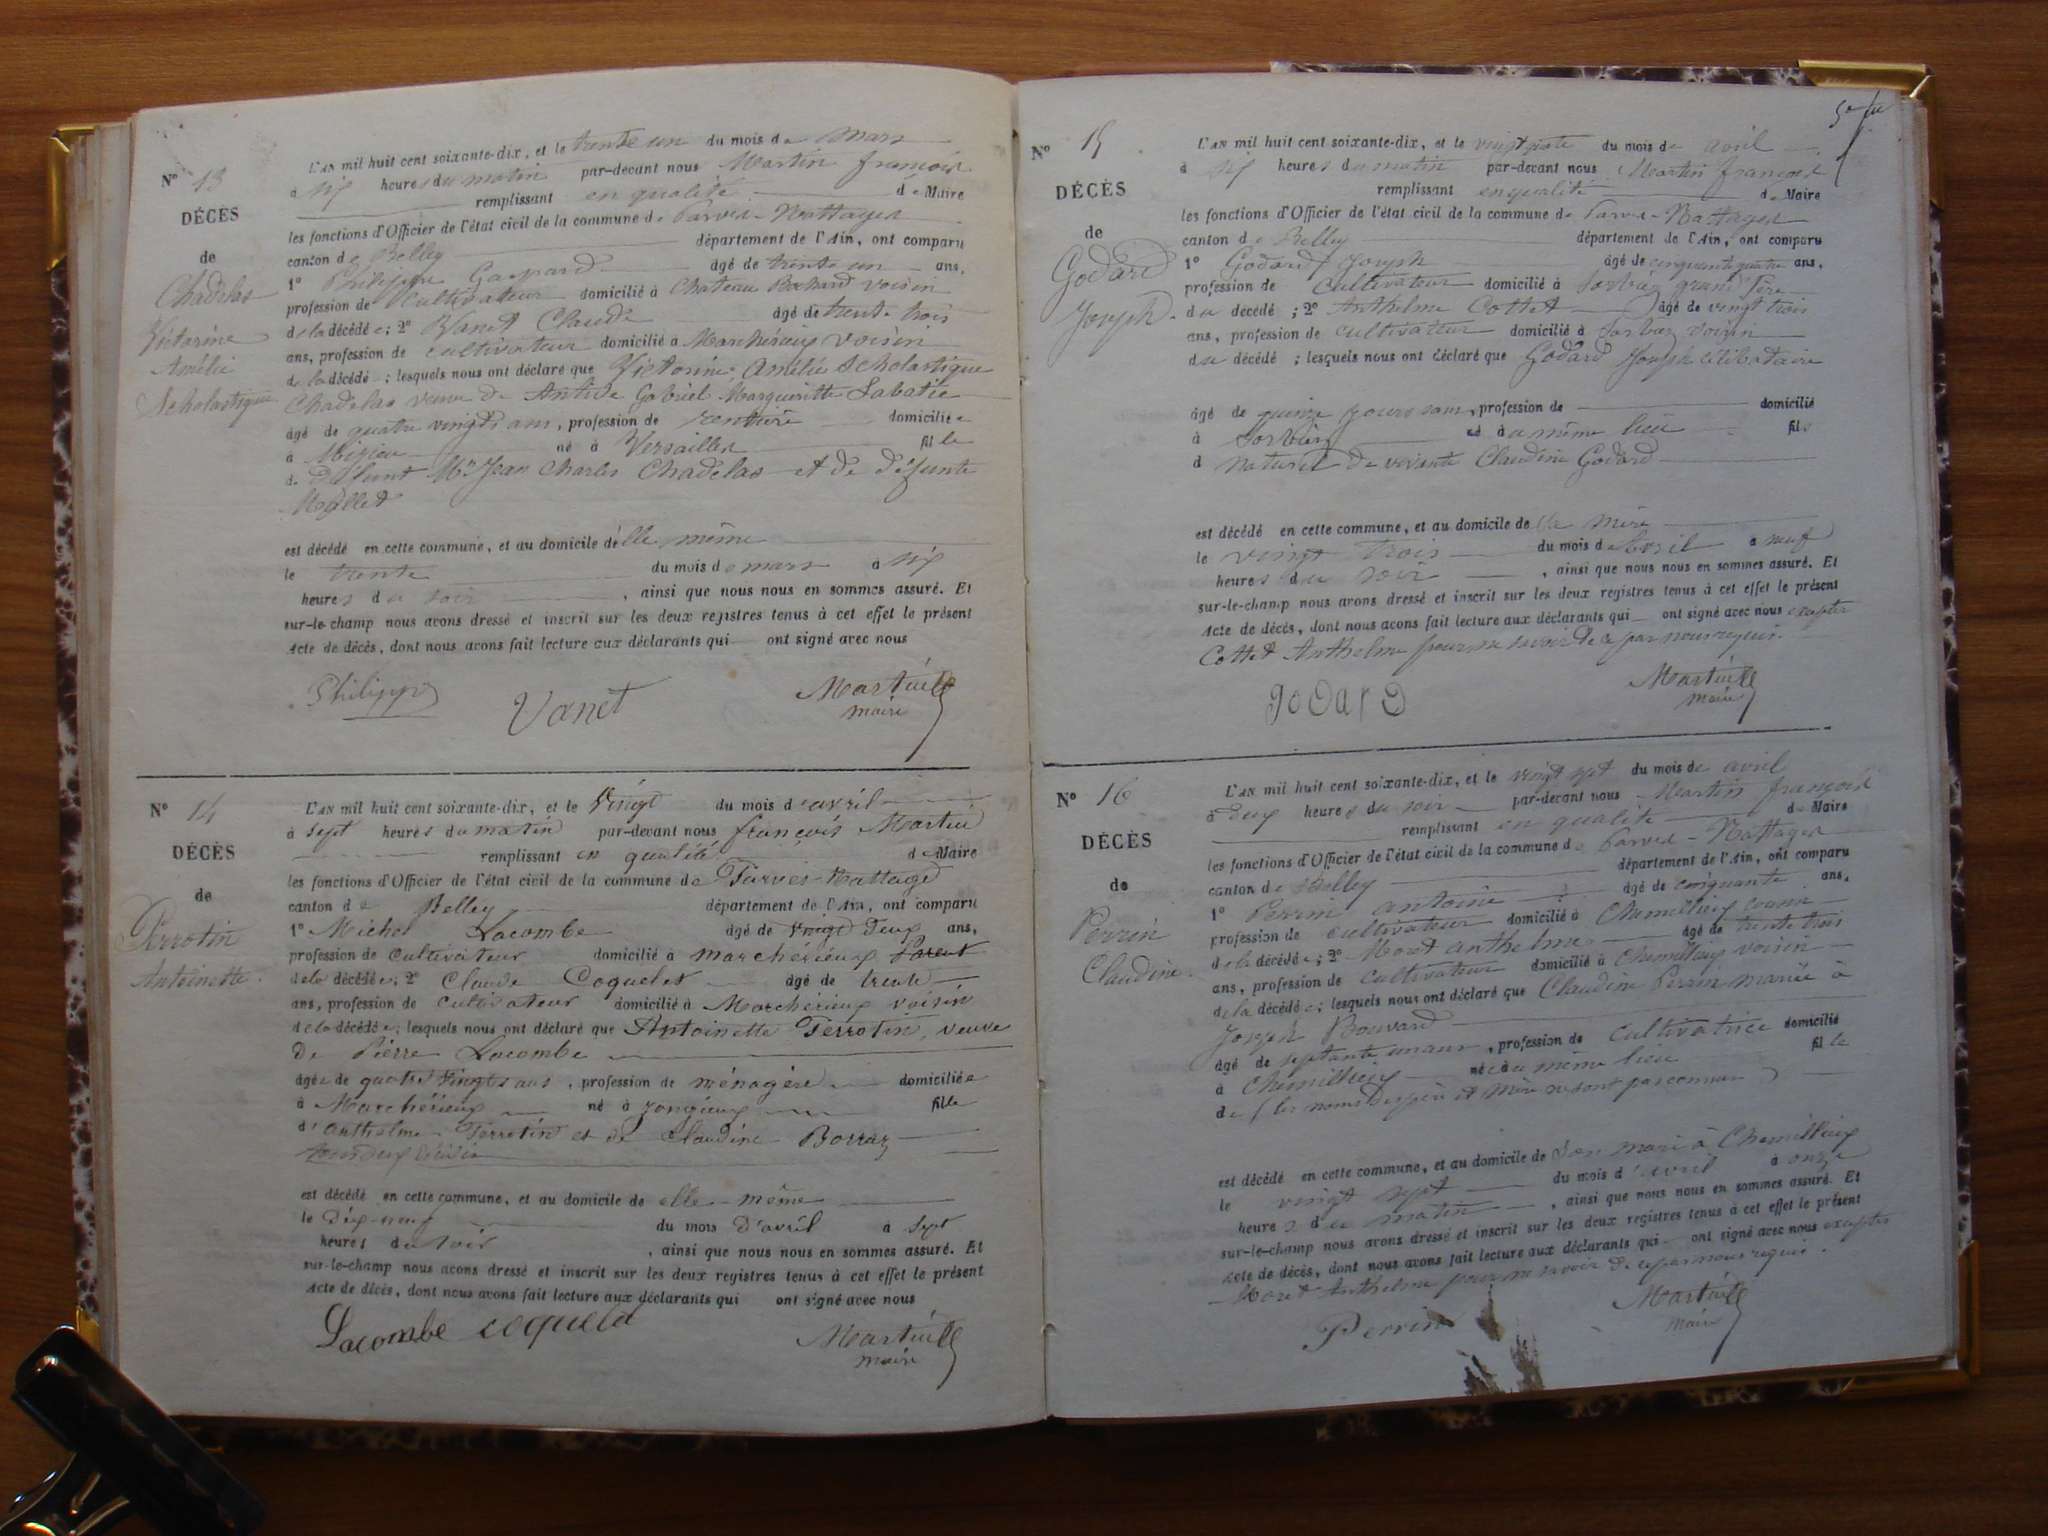 N° 13
DÉCÈS
de
Chadelas
Victorine
Amélie
Scholastique
L'AN mil huit cent soixante-dix, et le trente un du mois de mars
à six heures du matin par-devant nous Martin françois
remplissant en qualité de Maire
les fonctions d'Officier de l'état civil de la commune de Parves-Nattages
canton de Belley département de l'Ain, ont comparu
1° Philippe Gaspard âgé de trente un ans,
profession de cultivateur domicilié à Chateau Bochard voisin
de la décédée; 2° Vanet Claude âgé de trente trois
ans, profession de cultivateur domicilié à Marchérieux voisin
de la décédé; lesquels nous ont déclaré que Victorine Amélie Scholastique
Chadelas veuve de Antide Gabriel Margueritte Labatie
âgé de quatre vingts ans, profession de rentière domiciliée
à né à Versailles fille
de Défunt Mr Jean Charles Chadelas et de défunte
Mallet
est décédé en cette commune, et au domicile delle même
le trente du mois de mars à six
heures du soir, ainsi que nous nous en sommes assuré. Et
sur-le-champ nous avons dressé et inscrit sur les deux registres tenus à cet effet le présent
Acte de décès, dont nous avons fait lecture aux déclarants qui ont signé avec nous
Philippe Vanet Martin
maire
N° 14
DÉCÈS
de
Perrotin
Antoinette.
L'AN mil huit cent soixante-dix, et le Vingt du mois d'avril
à sept heures du matin par-devant nous françois Martin
remplissant en qualité de Maire
les fonctions d'Officier de l'état civil de la commune de Parves-Nattage
canton de Belley département de l'Ain, ont comparu
1° Michel Lacombe âgé de vingt deux ans,
profession de cultivateur domicilié à marchérieux Parent
de la décédée; 2° Claude Coquelet âgé de trente
ans, profession de cultivateur domicilié à Marchérieux voisin
de la décédée; lesquels nous ont déclaré que Antoinette Perrotin, veuve
de Pierre Lacombe
âgée de quatre Vingts ans, profession de ménagère domiciliée
à Marchérieux né à yongieux fille
d'anthelme Perrotin et de Claudine Borraz
tous deux
est décédé en cette commune, et au domicile de elle-même
le dix-neuf du mois d'avril à sept
heures du soir, ainsi que nous nous en sommes assuré. Et
sur-le-champ nous avons dressé et inscrit sur les deux registres tenus à cet effet le présent
Acte de décès, dont nous avons fait lecture aux déclarants qui ont signé avec nous
Lacombe coquelet Martin
maire
N° 15
DÉCÈS
de
Godard
Joseph.
L'AN mil huit cent soixante-dix, et le du mois de avril
à six heures du matin par-devant nous Martin françois
remplissant en qualité de Maire
les fonctions d'Officier de l'état civil de la commune de Parves-Nattages
canton de Belley département de l'Ain, ont comparu
1° Godard Joseph âgé de cinquante quatre ans,
profession de cultivateur domicilié à Sorbier grand Père
du décédé; 2° Anthelme Cottet âgé de vingt trois
ans, profession de cultivateur domicilié à Sorbier voisin
du décédé; lesquels nous ont déclaré que Godard Joseph célibataire
âgé de quinze jours, profession de domicilié
à Sorbier né au même lieu fils
d naturel de vivante Claudine Godard
est décédé en cette commune, et au domicile de sa mère
le vingt trois du mois d'Avril à neuf
heures du soir, ainsi que nous nous en sommes assuré. Et
sur-le-champ nous avons dressé et inscrit sur les deux registres tenus à cet effet le présent
Acte de décès, dont nous avons fait lecture aux déclarants qui ont signé avec nous excepter
Cottet Anthelme pour ne savoir de ce par nous requis.
godard Martin
maire
N° 16
DÉCÈS
de
Perrin
Claudine.
L'AN mil huit cent soixante-dix, et le vingt sept du mois de avril
à deux heures du soir par-devant nous Martin françois
remplissant en qualité de Maire
les fonctions d'Officier de l'état civil de la commune de Parves-Nattages
canton de Belley département de l'Ain, ont comparu
1° Perrin antoine âgé de cinquante ans,
profession de cultivateur domicilié à Chemillieu cousin
de la décédée; 2° Moret anthelme âgé de trente trois
ans, profession de cultivateur domicilié à Chemillieu voisin
de la décédée; lesquels nous ont déclaré que Claudine Perrin mariée à
Joseph Bouvard
âgé de septante un ans, profession de cultivatrice domicilié
à Chemillieu née au même lieu fille
de (les noms des père et mère ne sont pas connus)
est décédé en cette commune, et au domicile de son mari à Chemillieu
le vingt sept du mois d'avril à onze
heures du matin, ainsi que nous nous en sommes assuré. Et
sur-le-champ nous avons dressé et inscrit sur les deux registres tenus à cet effet le présent
Acte de décès, dont nous avons fait lecture aux déclarants qui ont signé avec nous excepter
Moret Anthelme pour ne savoir de ce par nous requis.
Perrin Martin
maire